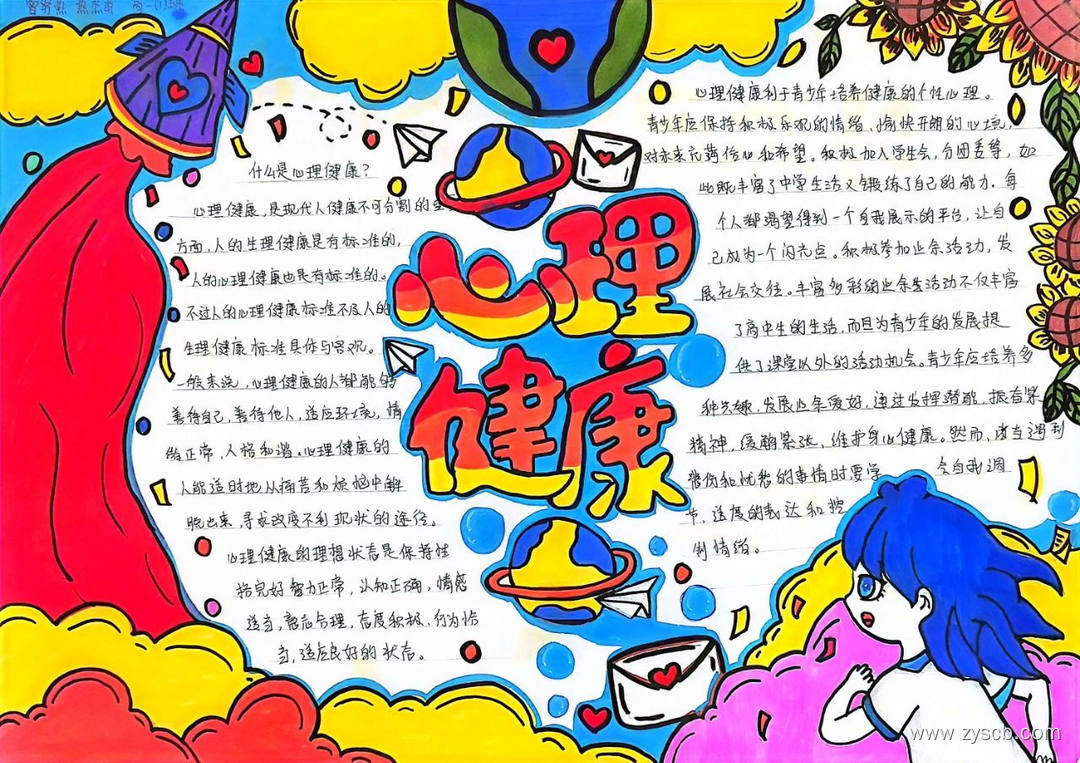 什么是心理健康？
心理健康，是现代人健康不可分割的重
方面，人的生理健康是有标准的，
人的心理健康也是有标准的。
不过人的心理健康标准不及人的
生理健康标准具体与客观。
一般来说，心理健康的人都能够
善待自己，善待他人，适应环境，情
绪正常，人格和谐。心理健康的
人能适时地从痛苦和烦恼中解
脱出来，寻求改变不利现状的途径。
心理健康的理想状态是保持性
格完好、智力正常，认知正确，情感
适当，意志合理，态度积极，行为恰
当，适应良好的状态。
心理
健康
心理健康利于青少年培养健康的个性心理。
青少年应保持积极乐观的情绪、愉快开朗的心境，
对未来充满信心和希望。积极加入学生会，分团委等，如
此既丰富了中学生活又锻练了自己的能力。每
个人都渴望得到一个自我展示的平台，让自
己成为一个闪光点。积极参加业余活动，发
展社会交往。丰富多彩的业余生活动不仅丰富
了高中生的生活，而且为青少年的发展提
供了课堂以外的活动机会。青少年应培养多
种兴趣，发展业余爱好，通过发挥潜能，振奋
精神，缓解紧张、维护身心健康。然而，没有遇到
悲伤和忧愁的事情时要学 会自我调
节，适度的表达和控
制情绪。
www.zyscb.com